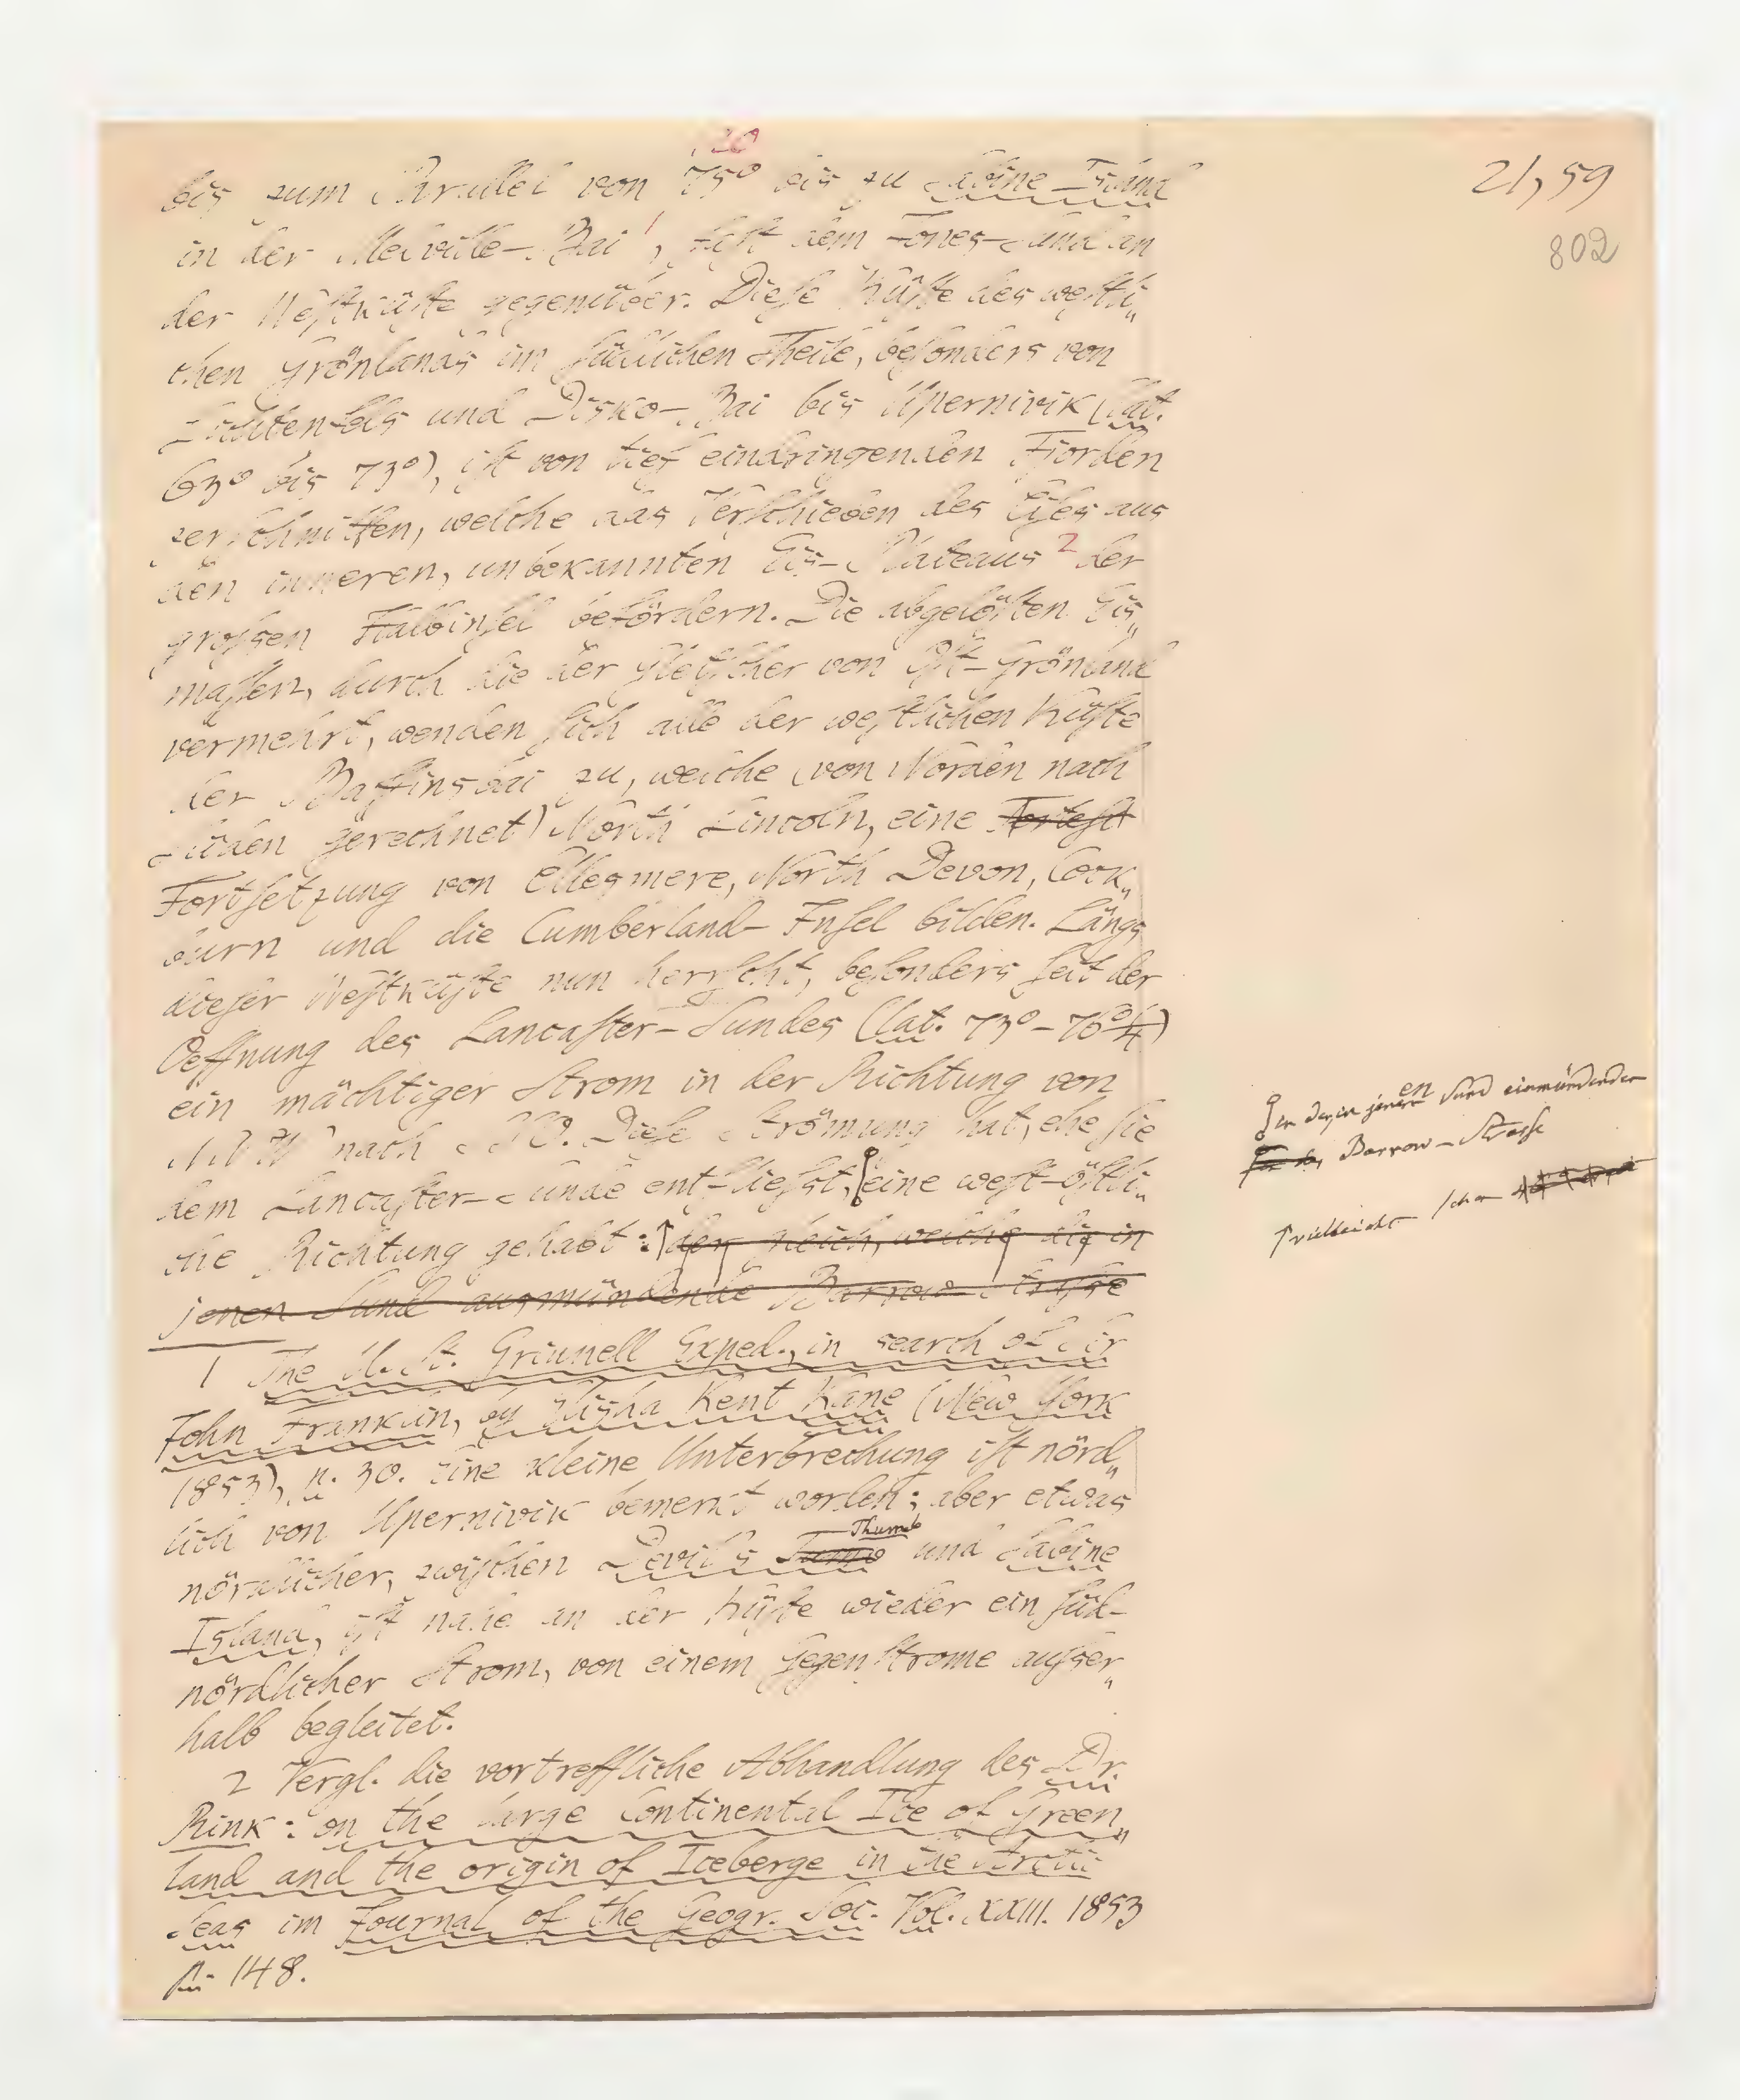 20
21,59
802
bis zum Parallel von 75° bis zu Sabine Island
in der Melville-Bai 1, fast dem Jones-Sund an
der Westküste gegenüber. Diese Küste des westli„
chen Grönlands im südlichen Theile, besonders von
und Disko-Bai bis Upernivik (lat.
63° bis 73°), ist von tief eindringenden Fjorden
zerschnitten, welche das Verschieben des Eises aus
den inneren, unbekannten Eis-Plateaus 2 der
grossen Halbinsel befördern. Die abgelösten Eis„
massen, durch die der Gletscher von Ost-Grönland
vermehrt, wenden sich alle der westlichen Küste
der Baffinsbai zu, welche (von Norden nach
Süden gerechnet) North Lincoln, eine
Fortsetzung von Ellesmere, North Devon, Cock„
burn und die Cumberland-Insel bilden. Längs
dieser Westküste nun herrscht, besonders seit der
Oeffnung des Lancaster-Sundes (lat. 73°-76°
ein mächtiger Strom in der Richtung von
NNW nach SSO. Diese Strömung hat, ehe sie
dem Lancaster-Sunde entfliesst, eine west-östli„
che Richtung gehabt: der gleich, welche die in
jenen Sund ausmündende Barrow-Strasse
in der in jenen Sund einmündenden
Barrow-Strasse
vielleicht schon
1 The U. St. Grinnell Exped., in search of Sir
John Franklin, by Elisha Kent Kane (New York
1853), p. 30. Eine kleine Unterbrechung ist nörd„
lich von Upernivik bemerkt worden; aber etwas
nördlicher, zwischen Devil's Thumb und Sabine
Island, ist nahe an der Küste wieder ein süd-
nördlicher Strom, von einem Gegenstrome ausser„
halb begleitet.
2 Vergl. die vortreffliche Abhandlung des Dr.
Rink: on the large Continental Ice of Green„
land and the origin of Iceberge in the Arctic
Seas im Journal of the Geogr. Soc. Vol. XXIII. 1853
p. 148.